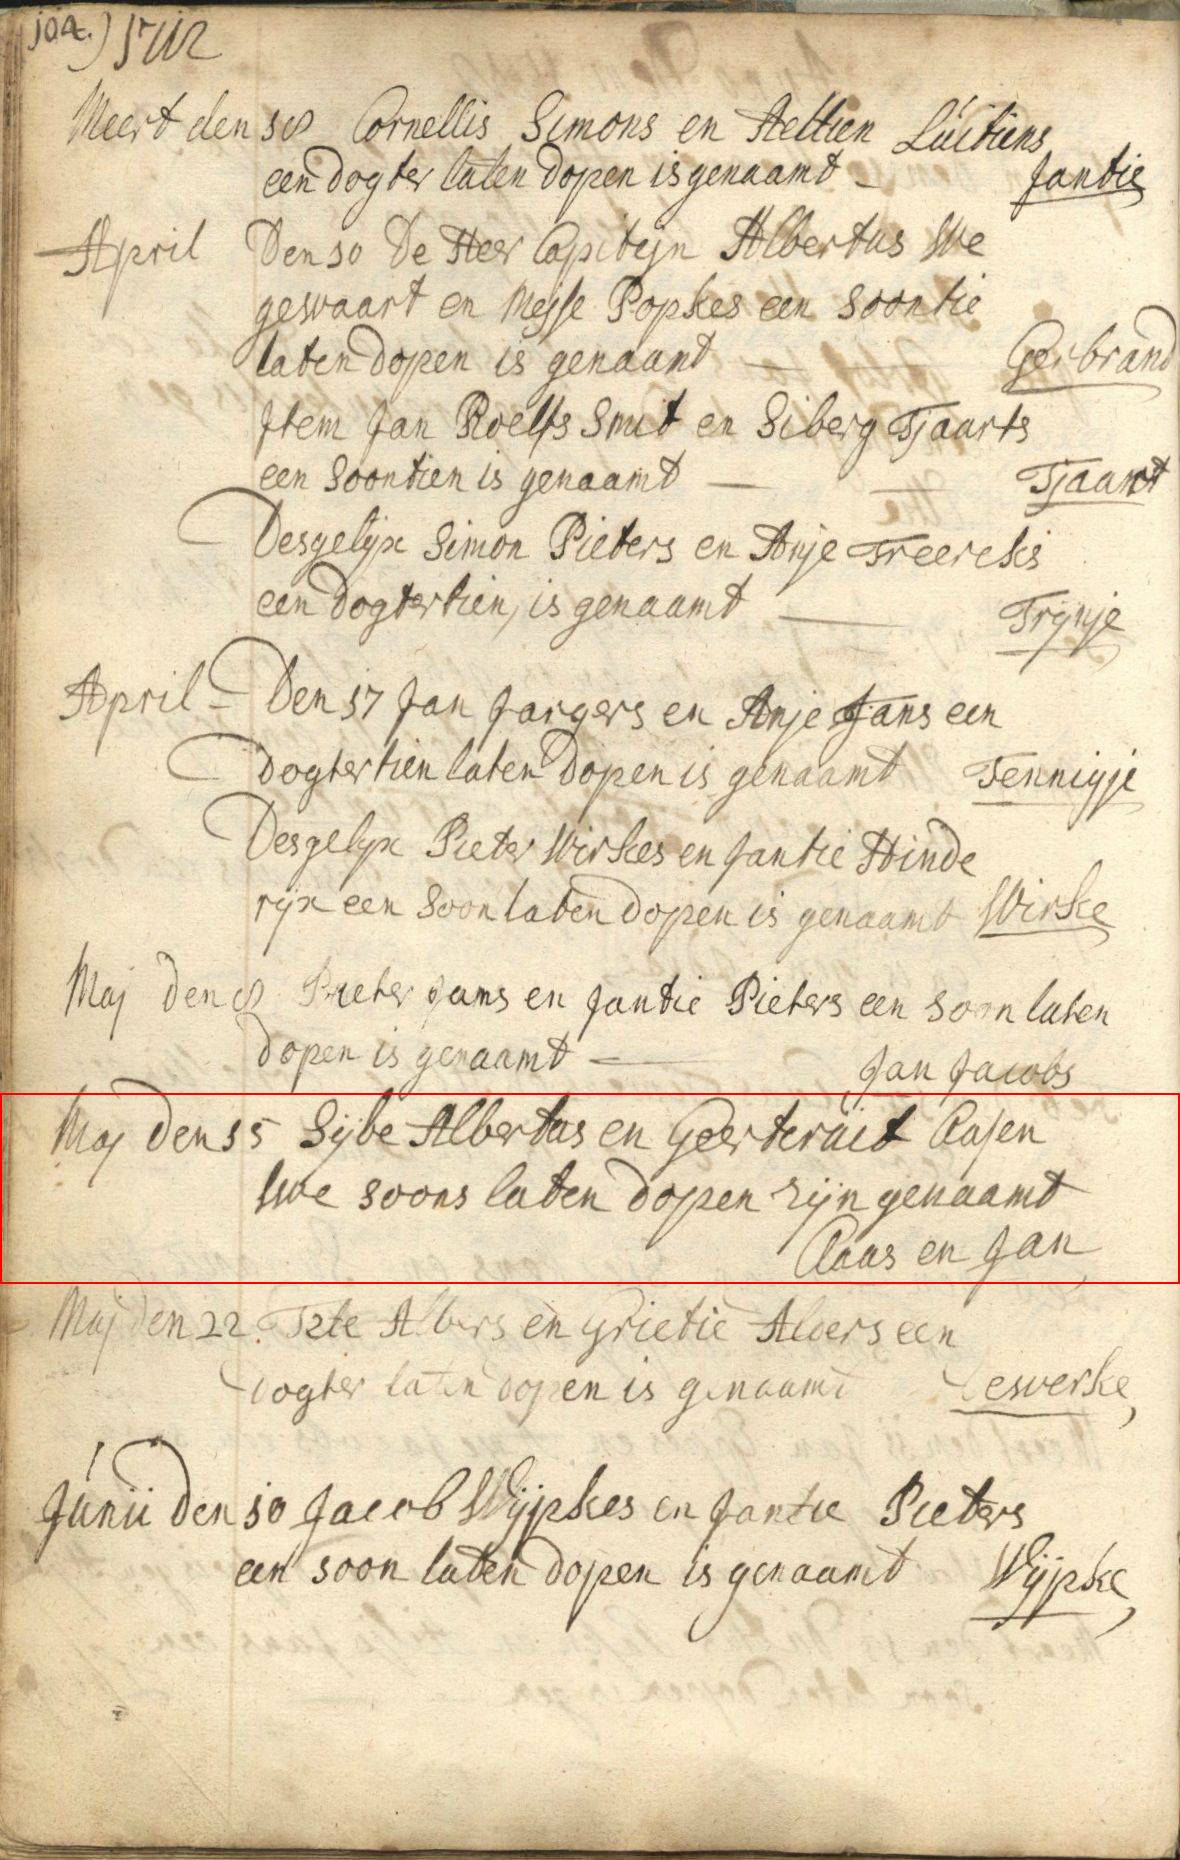 104.) 1712
Meert den 18 Cornellis Simons en Aeltien Lúitiens
een dogter laten dopen is genaamt - Jantie
April Den 10 De Heer Capiteyn Albertus We
geswaart en Popkes een soontie
laten dopen is genaamt — Gerbrand
Jtem Jan Roelfs Smit en Siberg Tjaarts
een soontien is genaamt — Tjaart
Desgelijx Simon Pieters en Anje Freercks
een dogtertien, is genaamt — Trynje
April - Den 17 Jan Jargers en Anje Jans een
dogtertien laten dopen is genaamt Tenniyje
Desgelijx Pieter Wirkes en Jantie Hinde
rijx een soon laten dopen is genaamt Wirke
Maj den 8 Pieter Jans en Jantie Pieters een soon laten
dopen is genaamt — Jan Jacobs
Maj den 15 Sijbe Albertus en Geerteruit Clasen
twe soons laten dopen zijn genaamt
Claas en Jan
Maj den 22. Albers en Grietie Alders een
dogter laten dopen is genaamt
Júnii den 10 Jacob Wijpkes en Jantie Pieters
een soon laten dopen is genaamt Wijpke,